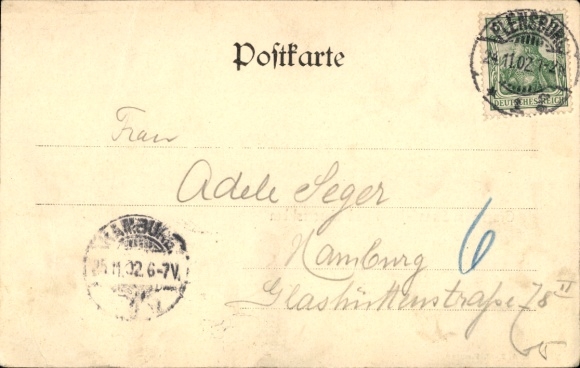 Postkarte
FLENSBURG
24.11.02.1-2N
DEUTSCHES REICH
Frau
Adele Seger
Hamburg 6
Glashüttenstraße 78 II
HAMBURG
25.11.02.6-7V.